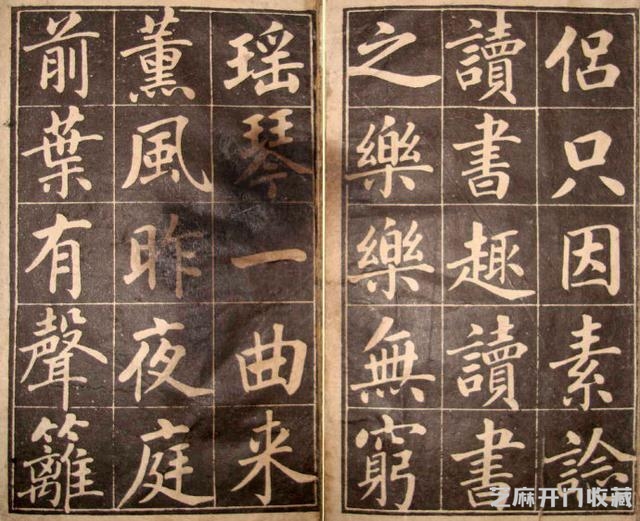 侶只因素諗
讀書趣讀書
之樂樂無窮
瑶琴一曲来
薰風昨夜庭
前葉有聲籬
芝麻开门收藏